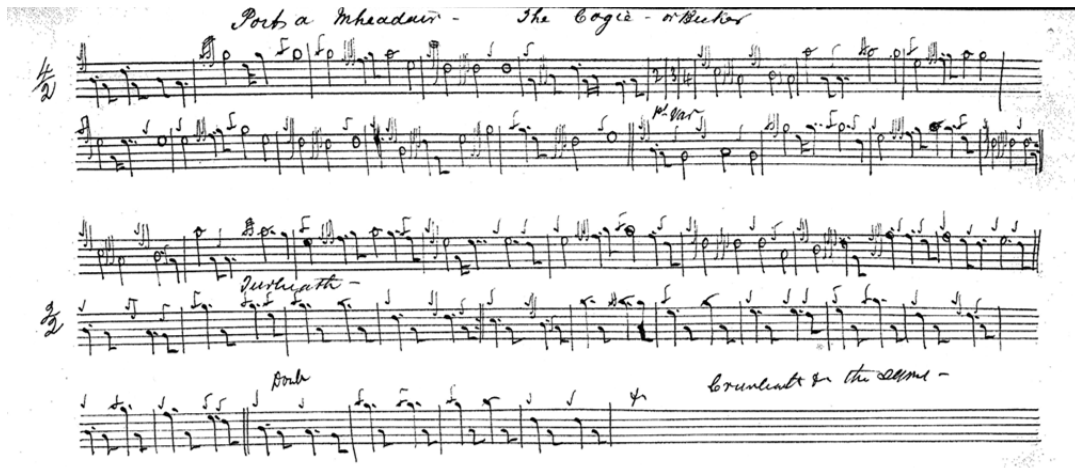 Port a Mheadair - The Cogie - or Bicker
4/2
2 3 4
1st Var
Turluath -
3/2
Doub
Crunluath &c the same -